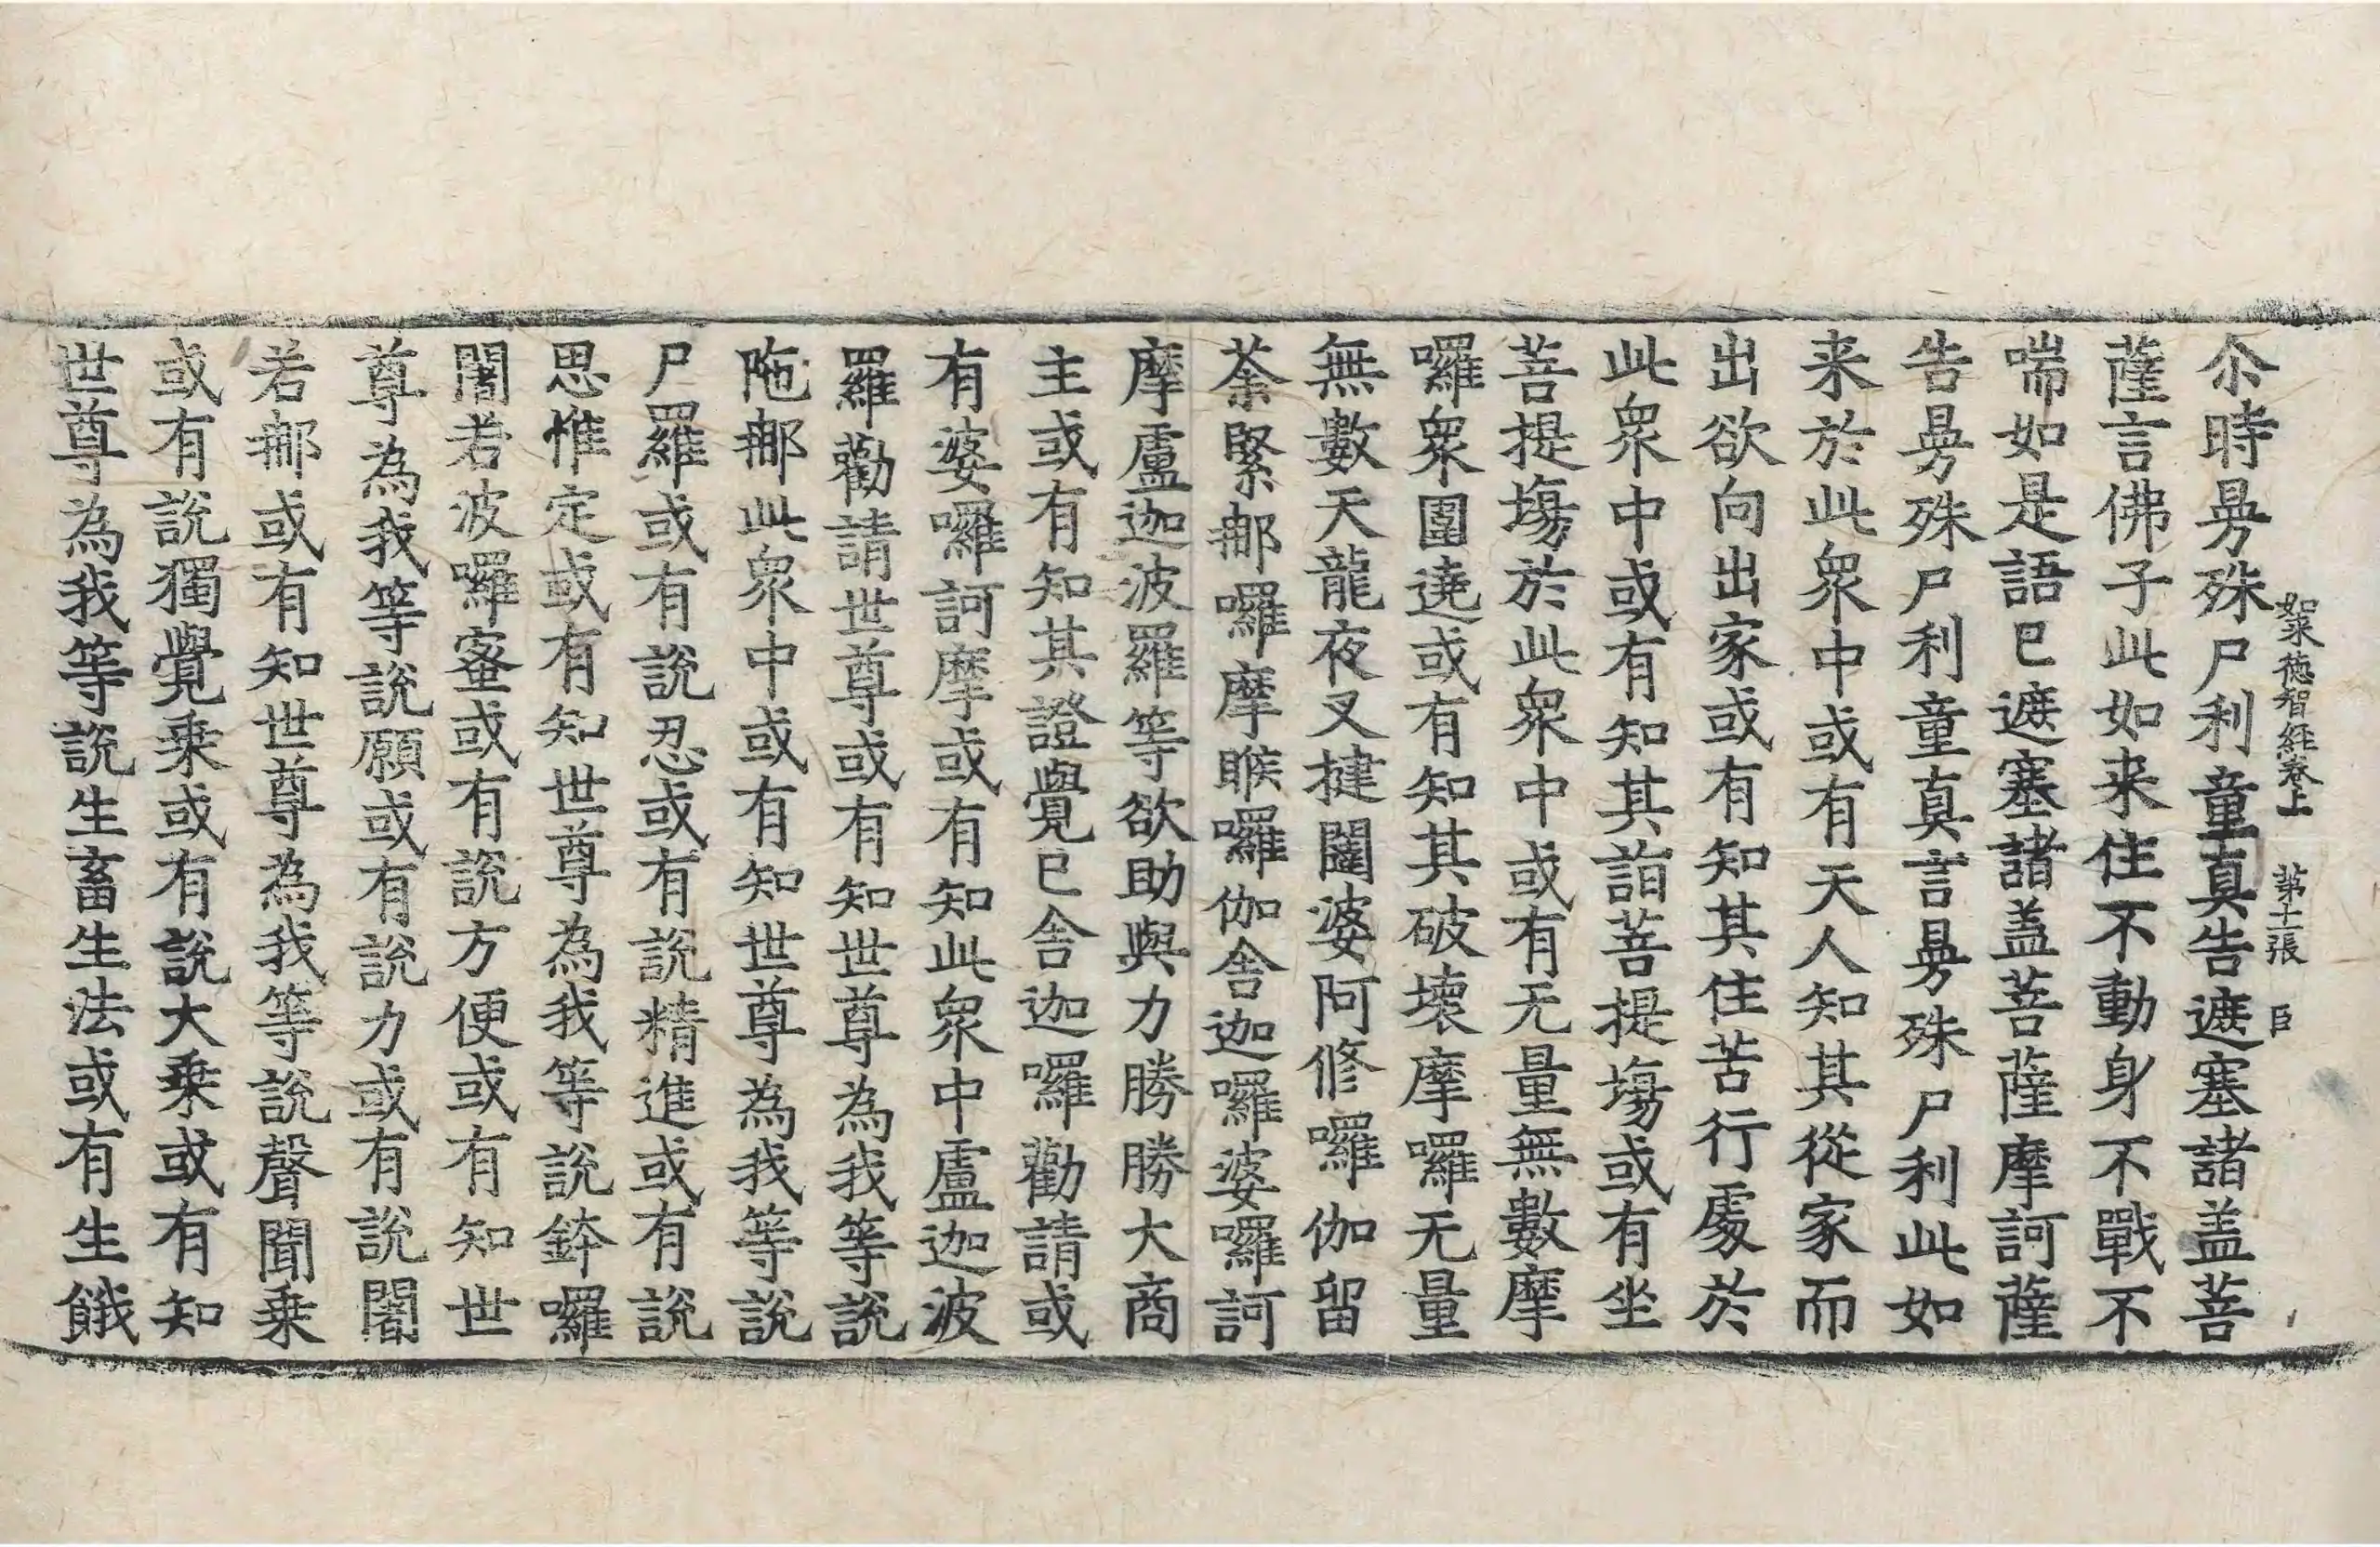 絮来徳智経卷上 第十二張 臣
尒時㬅殊尸利童真告遮塞諸盖菩
薩言佛子此如来住不動身不戰不
喘如是語已遮塞諸盖菩薩摩訶薩
告㬅殊尸利童真言㬅殊尸利此如
来於此衆中或有天人知其從家而
出欲向出家或有知其住苦行處於
此衆中或有知其詣菩提塲或有坐
菩提塲於此衆中或有无量無數摩
囉衆圍遶或有知其破壞摩囉无量
無數天龍夜叉揵闥婆阿修囉伽留
荼緊那囉摩睺囉伽舎迦囉婆囉訶
摩盧迦波羅等欲助與力勝勝大商
主或有知其證覺已舎迦囉勸請或
有婆囉訶摩或有知此衆中盧迦波
羅勸請世尊或有知世尊為我等説
陁那此衆中或有知世尊為我等説
尸羅或有説忍或有説精進或有説
思惟定或有知世尊為我等説鉢囉
闍若波囉蜜或有説方便或有知世
尊為我等説願或有説力或有説闍
若那或有知世尊為我等説聲聞乗
或有説獨覺乗或有説大乗或有知
世尊為我等説生畜生法或有生餓